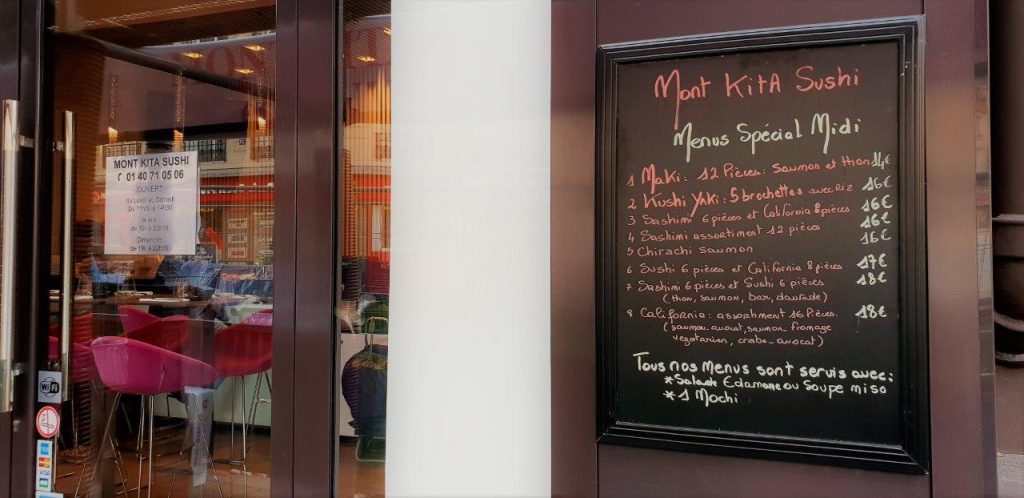 MONT KITA SUSHI
01 40 71 05 06
OUVERT
du Lundi au Samedi
De 11h30 à 14h30
le soir
de 19h à 22h30
Dimanche
de 19h à 22h30
WiFi
VISA
Mont KitA Sushi
Menus Spécial Midi
1 Maki: 12 Pièces: Saumon et thon 14€
2 Kushi Yaki: 5 brochettes avec Riz 16€
3 Sashimi 6 pièces et California 8 pièces 16€
4 Sashimi assortiment 12 pièces 16€
5 Chirachi saumon 16€
6 Sushi 6 pièces et California 8 pièces 17€
7 Sashimi 6 pièces et Sushi 6 pièces 18€
(thon, saumon, bar, daurade)
8 California: assortiment 16 Pièces. 18€
(saumon_avocat, saumon_fromage
vegetarien, crabe_avocat)
Tous nos menus sont servis avec:
*Salade Edamame ou Soupe miso
*1 Mochi